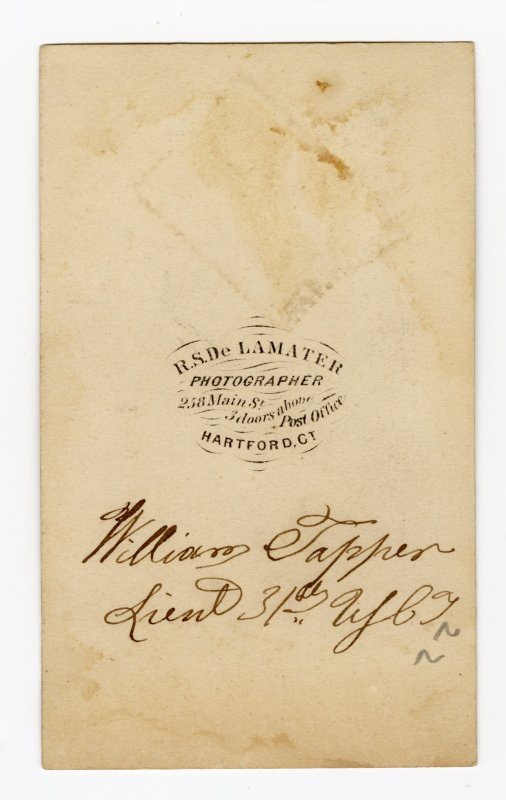 R.S. De LAMATER
PHOTOGRAPHER
258 Main St
3 doors above
Post Office
HARTFORD, CT
William Tapper
Lieut 31st